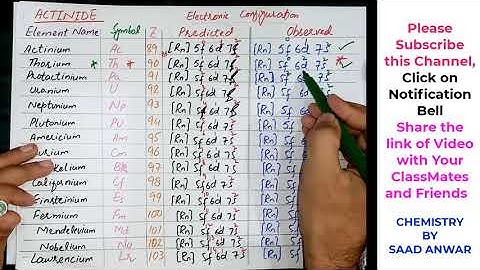 ACTINIDE Electronic Configuration
Element Name Symbol Z Predicted Observed
Actinium Ac 89 [Rn] 5f 6d 7s [Rn] 5f 6d 7s ✓
Thorium * Th * 90 [Rn] 5f 6d 7s [Rn] 5f 6d 7s * ✓
Protactinium Pa 91 [Rn] 5f 6d 7s [Rn] 5f 6d 7s
Uranium U 92 [Rn] 5f 6d 7s [Rn] 5f 6d 7s
Neptunium Np 93 [Rn] 5f 6d 7s [Rn] 5f 6d
Plutonium Pu 94 [Rn] 5f 6d 7s [Rn] 5f 6d
Americium Am 95 [Rn] 5f 6d 7s [Rn] 5f 6d
urium Cm 96 [Rn] 5f 6d 7s [Rn] 5f 6d
kelium Bk 97 [Rn] 5f 6d 7s [Rn] 5f 6d
Californium Cf 98 [Rn] 5f 6d 7s [Rn] 5f 6d
Einsteinium Es 99 [Rn] 5f 6d 7s [Rn] 5f 6d
Fermium Fm 100 [Rn] 5f 6d 7s [Rn] 5f 6d
Mendelevium Md 101 [Rn] 5f 6d 7s [Rn] 5f
Nobelium No 102 [Rn] 5f 6d 7s [Rn] 5f
Lawrencium Lr 103 [Rn] 5f 6d 7s [Rn] 5f
Please
Subscribe
this Channel,
Click on
Notification
Bell
Share the
link of Video
with Your
ClassMates
and Friends
CHEMISTRY
BY
SAAD ANWAR